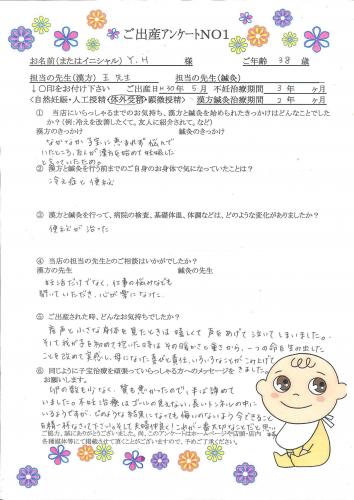 ご出産アンケートNO1
お名前(またはイニシャル) Y.H 様 ご年齢 38 歳
担当の先生(漢方) 王先生 担当の先生(鍼灸)
↓○印をお付け下さい ご出産日 H30年 5月 不妊治療期間 3年 ヶ月
<自然妊娠・人工授精・体外受精・顕微授精> 漢方鍼灸治療期間 2年 ヶ月
① 当店にいらっしゃるまでのお気持ち、漢方と鍼灸を始められたきっかけはどんなことでしたか?(例:冷えを改善したくて、友人に紹介されて、など)
漢方のきっかけ 鍼灸のきっかけ
なかなか子宝に恵まれず悩んで
いたところ、友人が漢方を始めて妊娠した
と言っていたため。
② 漢方と鍼灸を行う前までのご自身のお身体で気になっていたことは?
冷え症と便秘
③ 漢方と鍼灸を行って、病院の検査、基礎体温、体調などは、どのような変化がありましたか?
便秘が治った
④ 当店の担当の先生とのご相談はいかがでしたか?
漢方の先生 鍼灸の先生
妊活だけでなく、仕事の悩みなども
聞いていただき、心が楽になりました
⑤ ご出産された時、どんなお気持ちでしたか?
産声と小さな身体を見たときは嬉しくて声をあげて泣いてしまいました。
そして我が子を初めて抱いた時はその温かさと重さから、一つの命を生み出した
ことを改めて実感し、母になった喜びと責任、いろいろなことがこみ上げて
きました。
⑥ 同じように子宝治療を頑張っていらっしゃる方へのメッセージを
お願いします。
卵の数も少なく、質も悪かったので、半ば諦めて
いました。不妊治療はゴールの見えない、長いトンネルの中に
いるようですが、どのような結果になっても悔いのないよう今できること
を精一杯なさって下さい。そして夫婦仲良く!これが一番大切なことだと思い
ご協力、誠にありがとうございました。尚、このアンケートはホームページや店頭・店内
各種媒体等にて掲載させて頂くことがございますので、予めご了承ください。